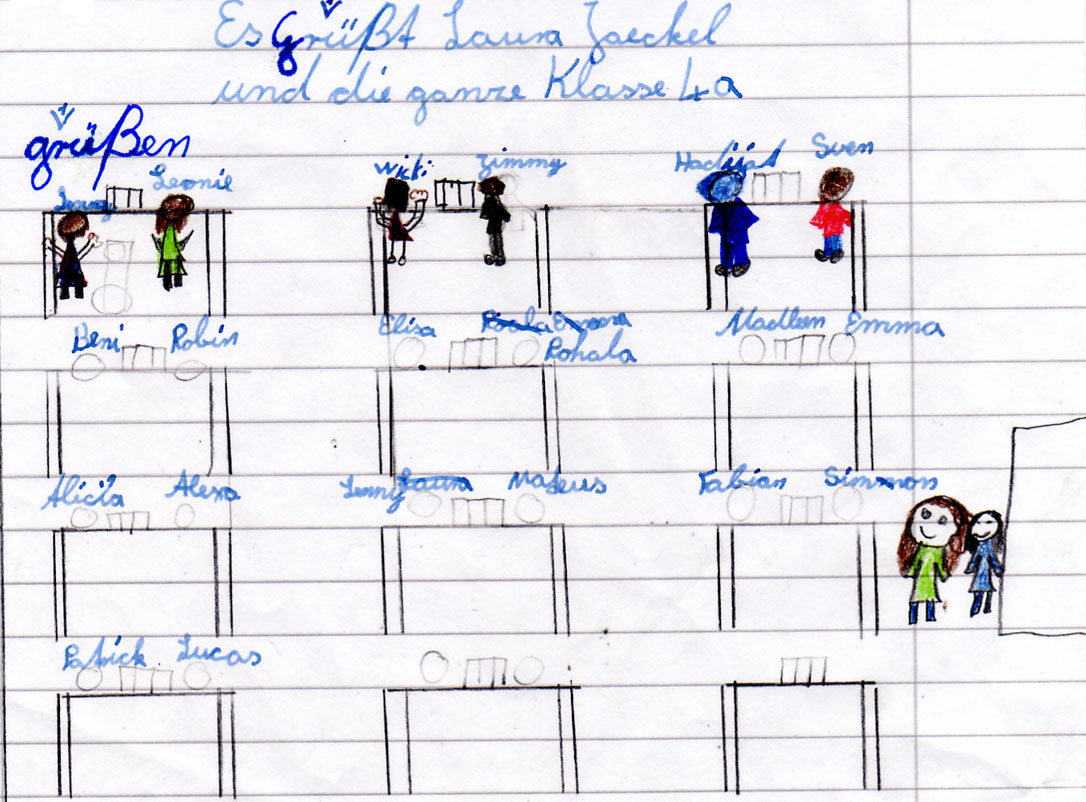 Es Grüßt Laura Jaeckel
und die ganze Klasse 4a
grüßen
Leonie
Wicki Jimmy
Sven
Beni Robin
Elisa Emma
Rohala
Madleen Emma
Alicia Alexa
Lenny Laura Mateus
Fabian Simmon
Patrick Lucas